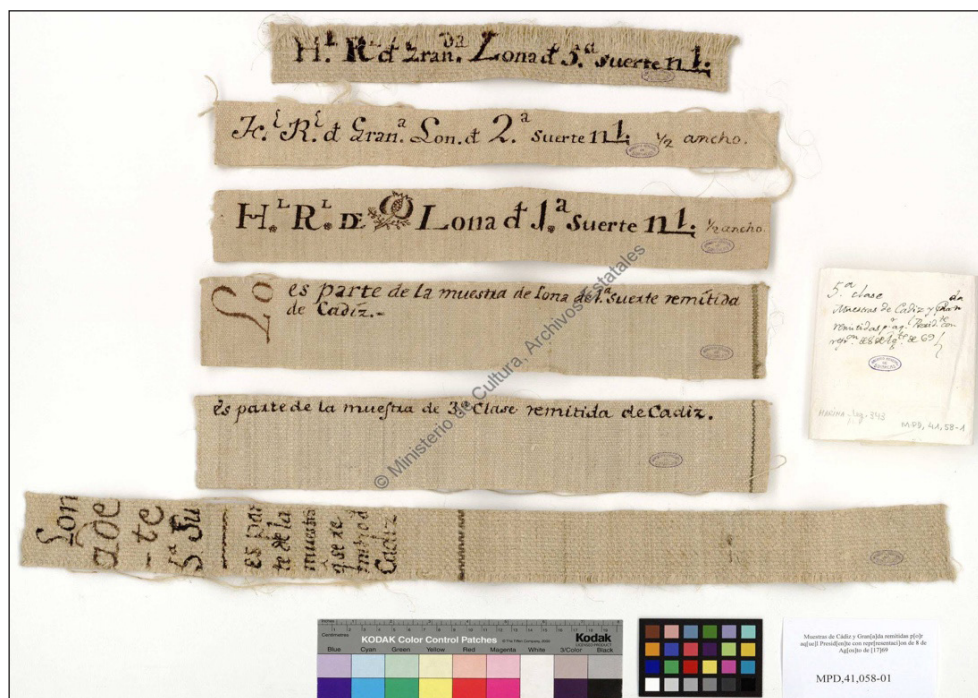 H.L R.L de Gran.DA Lona de 3.a Suerte n 1.
H.l R.l de Gran.a Lon. de 2.a Suerte n 1. 1/2 ancho.
H.L R.L DE Lona de 1.a Suerte n 1. 1/2 ancho.
Lo
es parte de la muestra de Lona de 1.a suerte remitida
de Cadíz.-
es parte de la muestra de 3.a Clase remitida de Cadiz.
Lon
a de
- te
3.a Su
es par
te de la
muestra
q se re
mitió d
Cadiz
5.a clase
Muestras de Cadiz y Gran.da
remitidas p.r aq.l Presid.te con
repr.on de 8 de Ag.to de 69
MARINA-leg. 343
M.P.D, 41, 58-1
© Ministerio de Cultura, Archivos Estatales
Centimetres
KODAK Color Control Patches
Kodak
LICENSED PRODUCT
Blue Cyan Green Yellow Red Magenta White 3/Color Black
Muestras de Cádiz y Gran[a]da remitidas p[o]r
aq[ue]l Presid[en]te con repr[esentaci]on de 8 de
Ag[os]to de [17]69
MPD,41,058-01